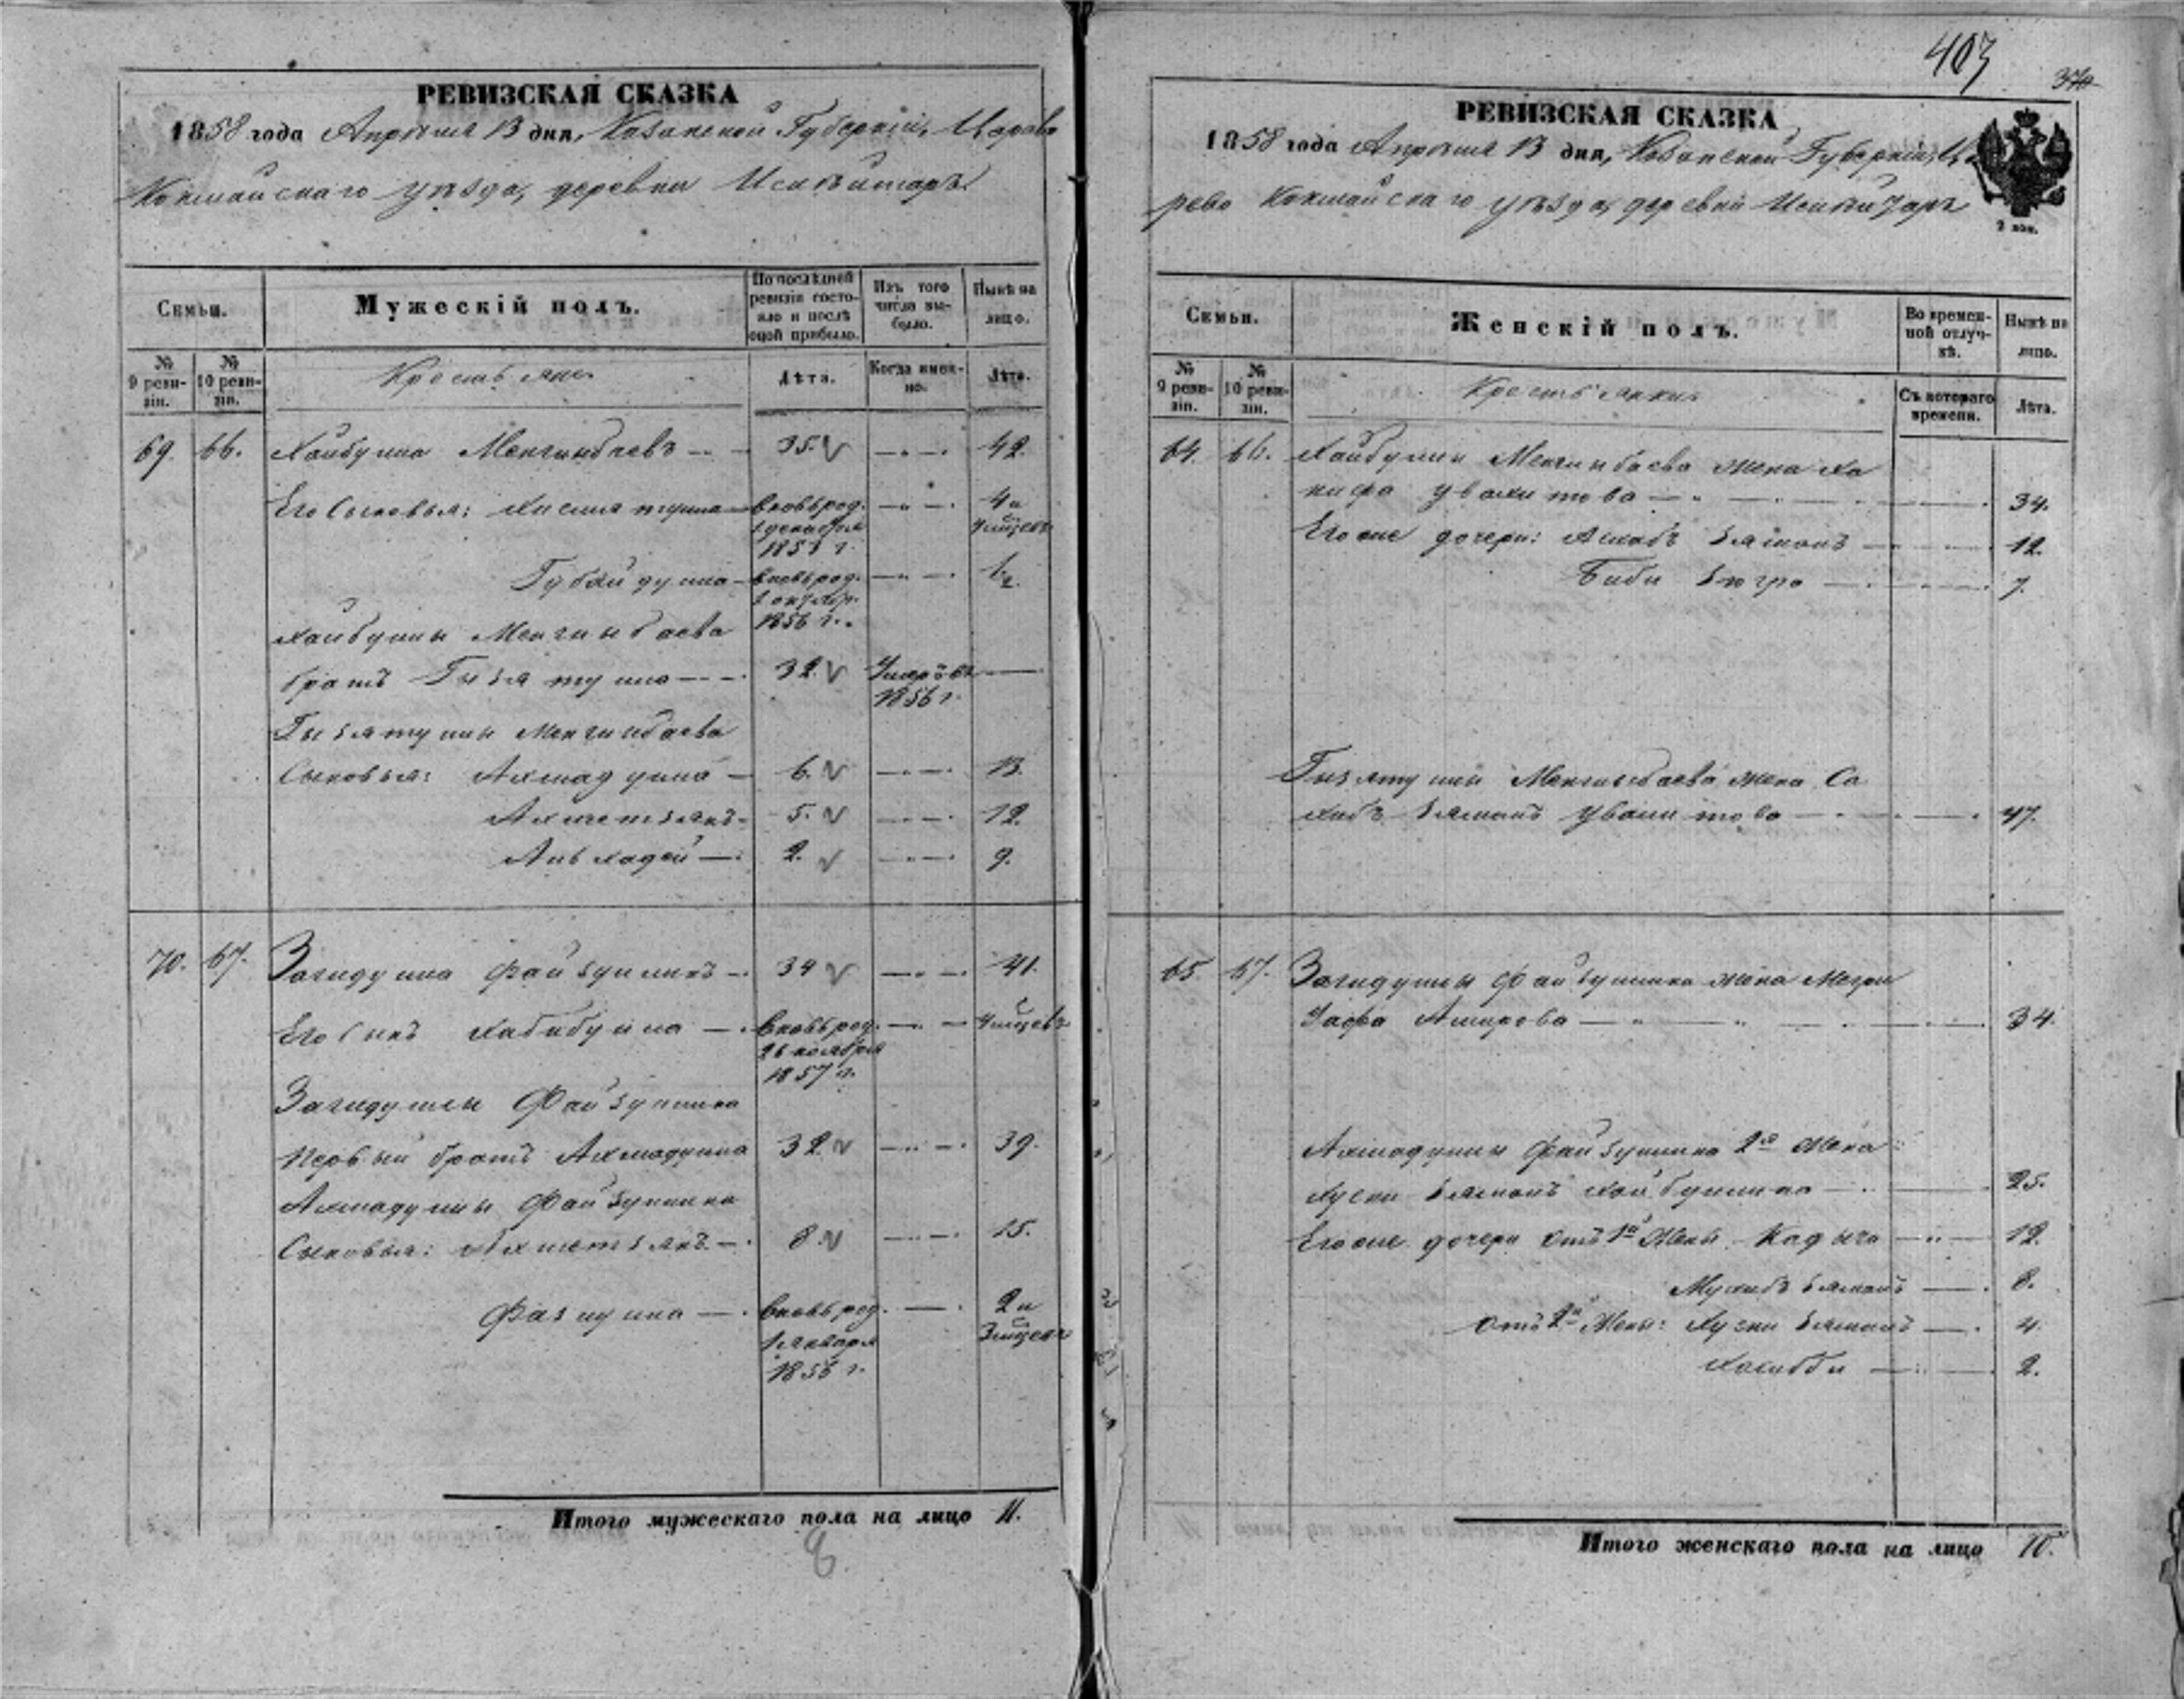 РЕВИЗСКАЯ СКАЗКА
1858 года Апрѣля 13 дня, Казанской Губерніи, Царево
Кокшайскаго уѣзда, деревни
Семьи.
Мужескій полъ.
По послѣдней ревизіи состояло и послѣ оной прибыло.
Изъ того числа выбыло.
Нынѣ на лицо.
№ 9 ревизіи.
№ 10 ревизіи.
Крестьяне
Лѣта.
Когда именно.
Лѣта.
69. 66. Хайбулла Менгинбаевъ 35. 42.
Его Сыновья: вновь род. 4 и
декабря
1853 г.
Губайдулла вновь род.
октябр.
1856 г.
Хайбуллы Менгинбаева
братъ Гызятулла 32. Умеръ въ
1856 г.
Гызятуллы Менгинбаева
Сыновья: Ахмадулла 6. 13.
Ахметзянъ 5. 12.
2. 9.
70. 67. Загидулла Файзуллинъ 34 41.
Его сынъ Хабибулла вновь род.
26 ноября
1857 г.
Загидуллы Файзуллина
Первый братъ Ахмадулла 32. 39.
Ахмадуллы Файзуллина
Сыновья: Ахметзянъ 8. 15.
Фазлулла вновь род. 2 и
января 3 мѣсяц.
1856 г.
Итого мужескаго пола на лицо 11.
8.
403
РЕВИЗСКАЯ СКАЗКА
1858 года Апрѣля 13 дня, Казанской Губерніи, Ца
рево Кокшайскаго уѣзда, деревни
2 коп.
Семьи.
Женскій полъ.
Во временной отлучкѣ.
Нынѣ на лицо.
№ 9 ревизіи.
№ 10 ревизіи.
Крестьянки
Съ котораго времени.
Лѣта.
64. 66. Хайбуллы Менгинбаева жена Ха
нифа 34.
Его же дочери: 12.
Биби 7.
Гызятуллы Менгинбаева жена Са
хибъ Зямалъ 47.
65. 67. Загидуллы Файзуллина жена
Амирова 34.
Ахмадуллы Файзуллина 2я жена
Хусни Зямалъ Хайбуллина 25.
Его же дочери отъ 1й жены Кадыча 12.
Зямалъ 8.
Отъ 2й жены: Хусни Зямалъ 4.
2.
Итого женскаго пола на лицо 10.